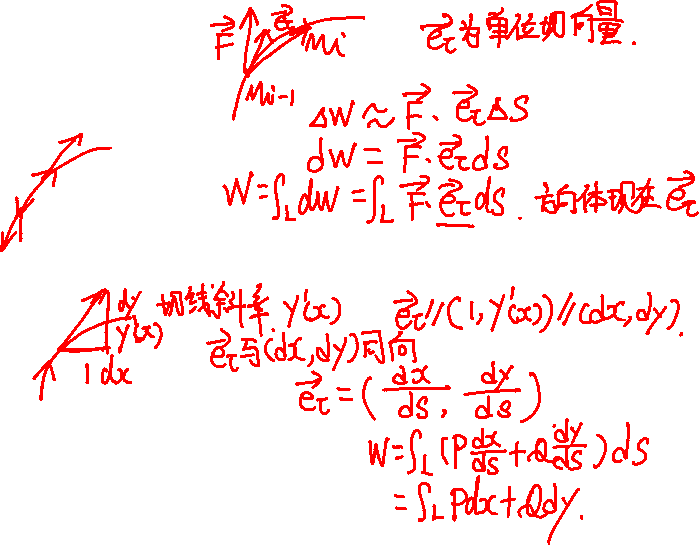 F⃗ e⃗τ Mi e⃗τ为单位切向量.
Mi-1
ΔW ≈ F⃗·e⃗τ ΔS
dW = F⃗·e⃗τ ds
W = ∫L dW = ∫L F⃗·e⃗τ ds. 方向体现在 e⃗τ
dy 切线斜率 y'(x) e⃗τ // (1, y'(x)) // (dx, dy).
y'(x) e⃗τ与(dx, dy)同向
1 dx e⃗τ = (dx/ds, dy/ds)
W = ∫L (P dx/ds + Q dy/ds) ds
= ∫L Pdx + Qdy.